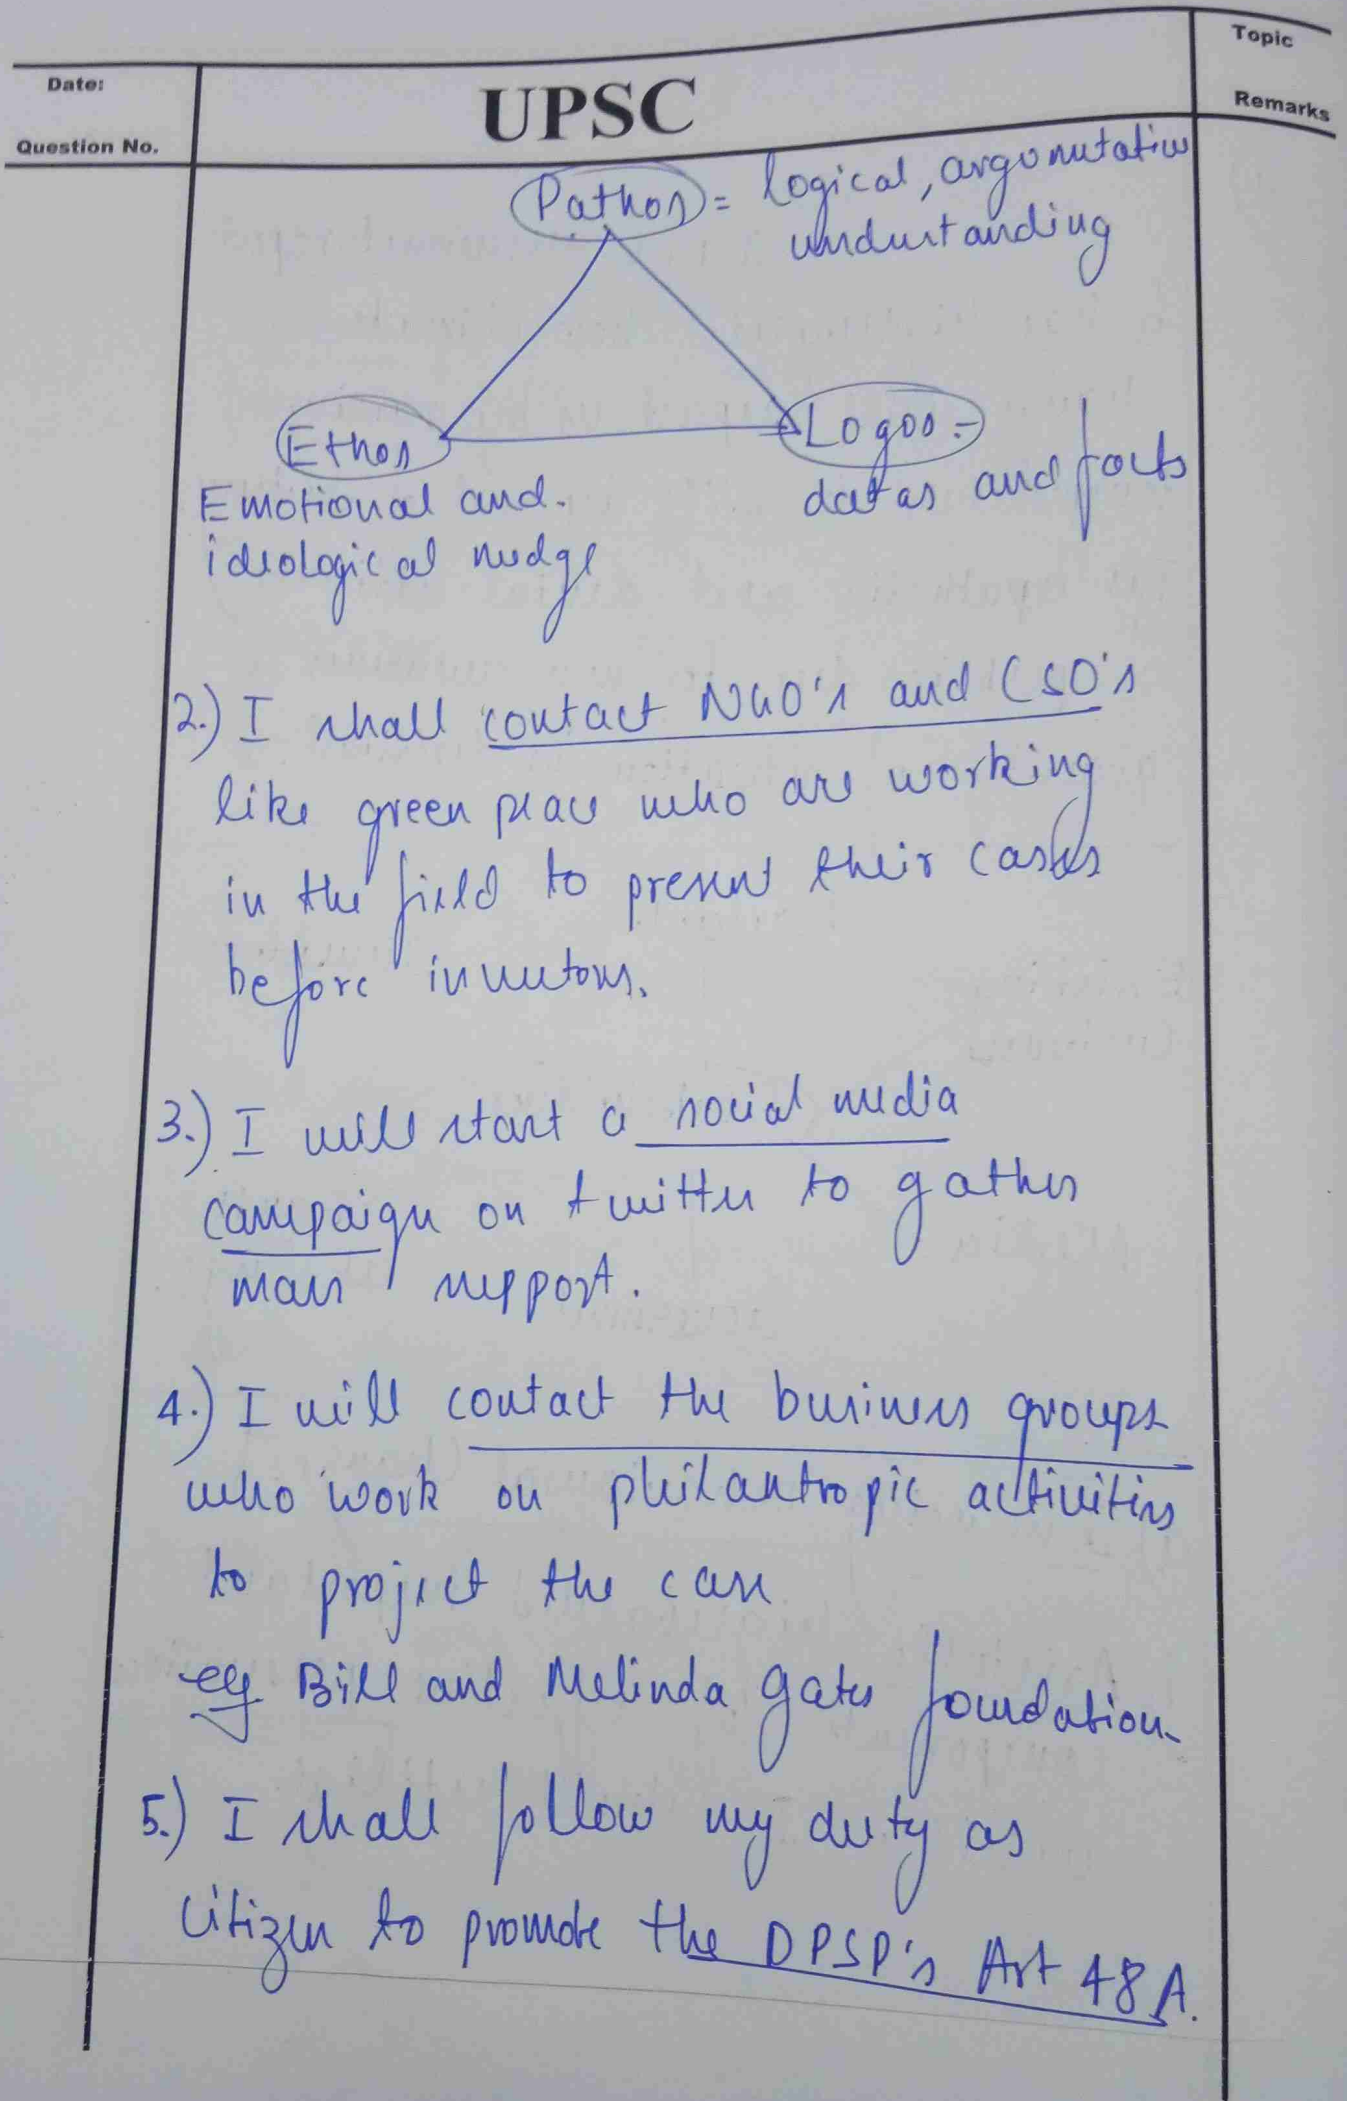 Topic
Date:
UPSC
Remarks
Question No.
Pathos = logical, argumutative
understanding
Ethos
Logos =
Emotional and
ideological nudge
datas and facts
2.) I shall contact NGO's and CSO's
like green peace who are working
in the field to present their cases
before investors.
3.) I will start a social media
campaign on twitter to gather
mass support.
4.) I will contact the business groups
who work on philantropic activities
to project the case
eg Bill and Melinda gates foundation
5.) I shall follow my duty as
citizen to promote the DPSP's Art 48A.